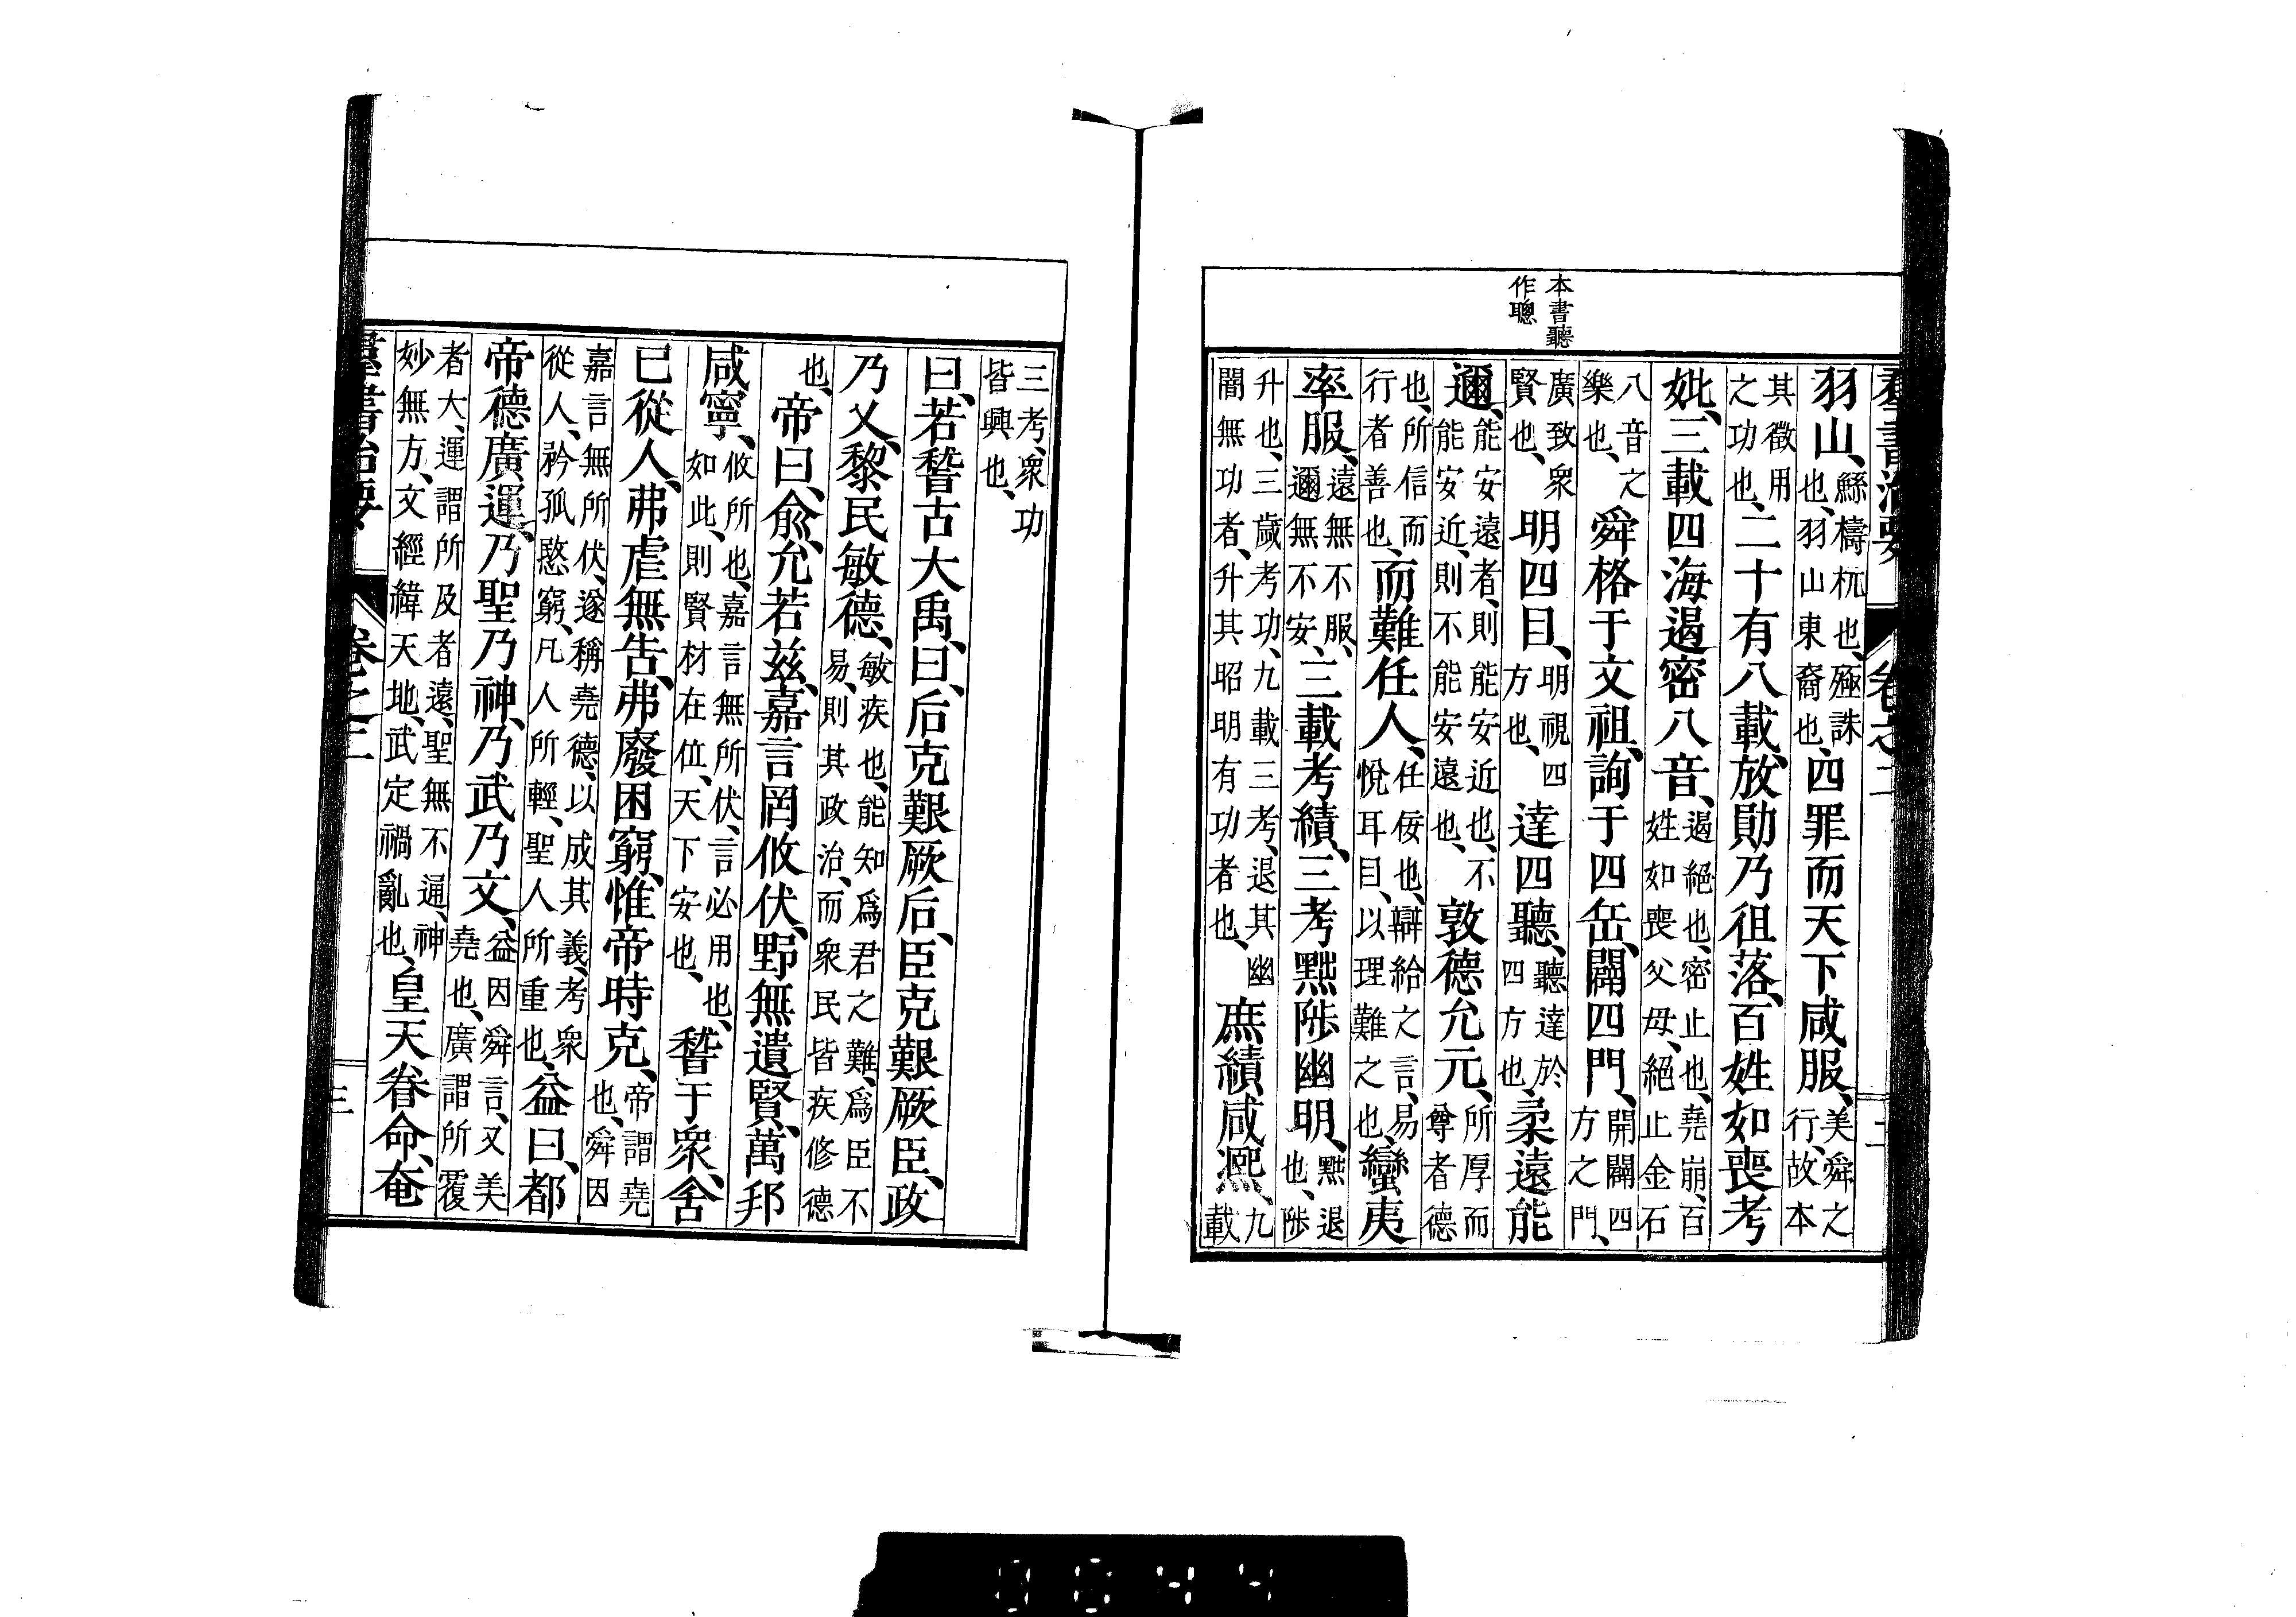 羣書治要 卷之二 二
本書聽
作聰
羽山、鯀檮杌也、殛誅也、羽山東裔也、四罪而天下咸服、美舜之行、故本
其徵用之功也、二十有八載、放勛乃徂落、百姓如喪考
妣、三載四海遏密八音、遏絕也、密止也、堯崩、百姓如喪父母、絕止金石
八音之樂也、舜格于文祖、詢于四岳、闢四門、開闢四方之門、
廣致衆賢也、明四目、明視四方也、達四聽、聽達於四方也、柔遠能
邇、能安遠者、則能安近也、不能安近、則不能安遠也、敦德允元、所厚而尊者德
也、所信而行者善也、而難任人、任佞也、辯給之言、易悅耳目、以理難之也、蠻夷
率服、遠無不服、邇無不安、三載考績、三考黜陟幽明、黜退也、陟
升也、三歲考功、九載三考、退其幽闇無功者、升其昭明有功者也、庶績咸熙、九載
三考、衆功皆興也、
曰、若稽古大禹、曰、后克艱厥后、臣克艱厥臣、政
乃乂、黎民敏德、敏疾也、能知爲君之難、爲臣不易、則其政治、而衆民皆疾修德
也、帝曰、俞、允若茲、嘉言罔攸伏、野無遺賢、萬邦
咸寧、攸所也、嘉言無所伏、言必用也、如此、則賢材在位、天下安也、稽于衆、舍
已從人、弗虐無告、弗廢困窮、惟帝時克、帝謂堯也、舜因
嘉言無所伏、遂稱堯德、以成其義、考衆從人、矜孤愍窮、凡人所輕、聖人所重也、益曰、都
帝德廣運、乃聖乃神、乃武乃文、益因舜言、又美堯也、廣謂所覆
者大、運謂所及者遠、聖無不通、神妙無方、文經緯天地、武定禍亂也、皇天眷命、奄
羣書治要 卷之二 三
0044